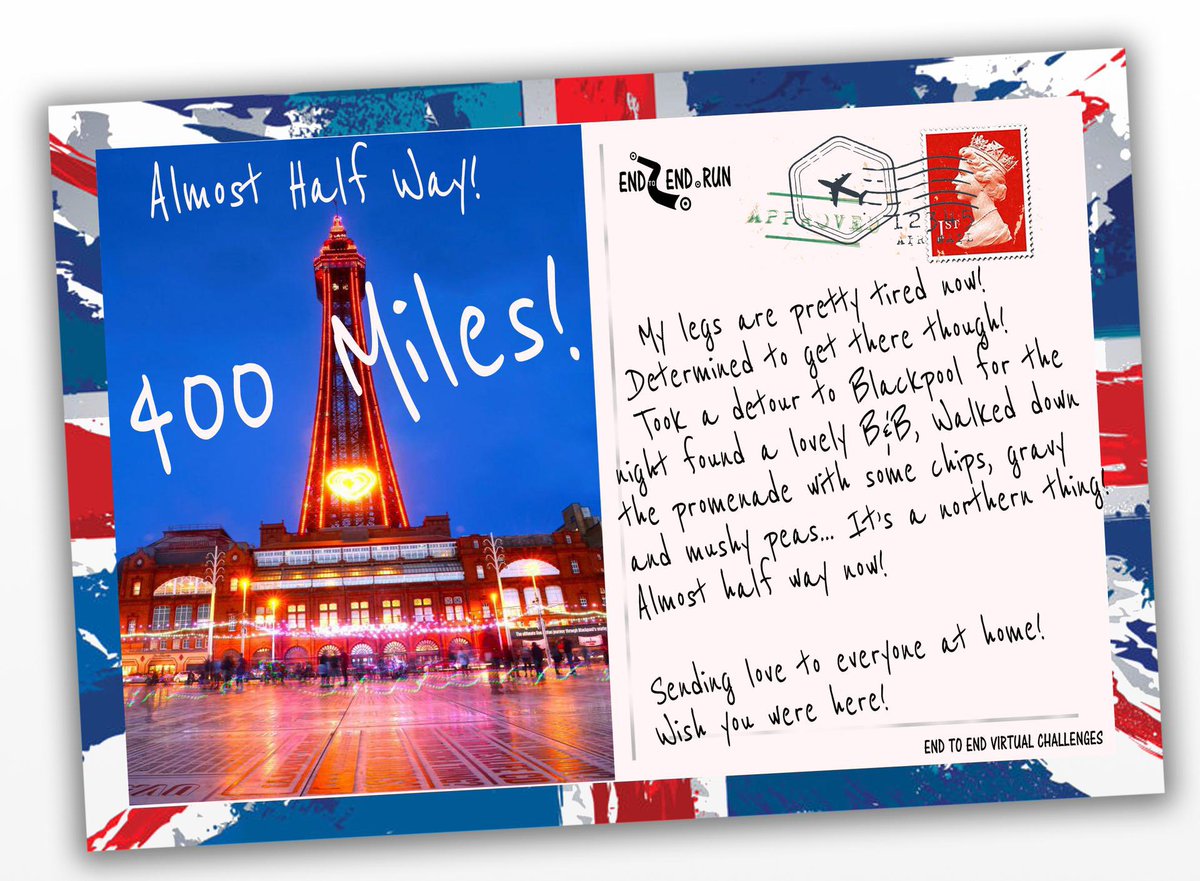 Almost Half Way!
400 Miles!
END TO END.RUN
APPROVED
AIR MAIL
1ST
My legs are pretty tired now!
Determined to get there though!
Took a detour to Blackpool for the
night found a lovely B&B, Walked down
the promenade with some chips, gravy
and mushy peas... It's a northern thing!
Almost half way now!
Sending love to everyone at home!
Wish you were here!
END TO END VIRTUAL CHALLENGES